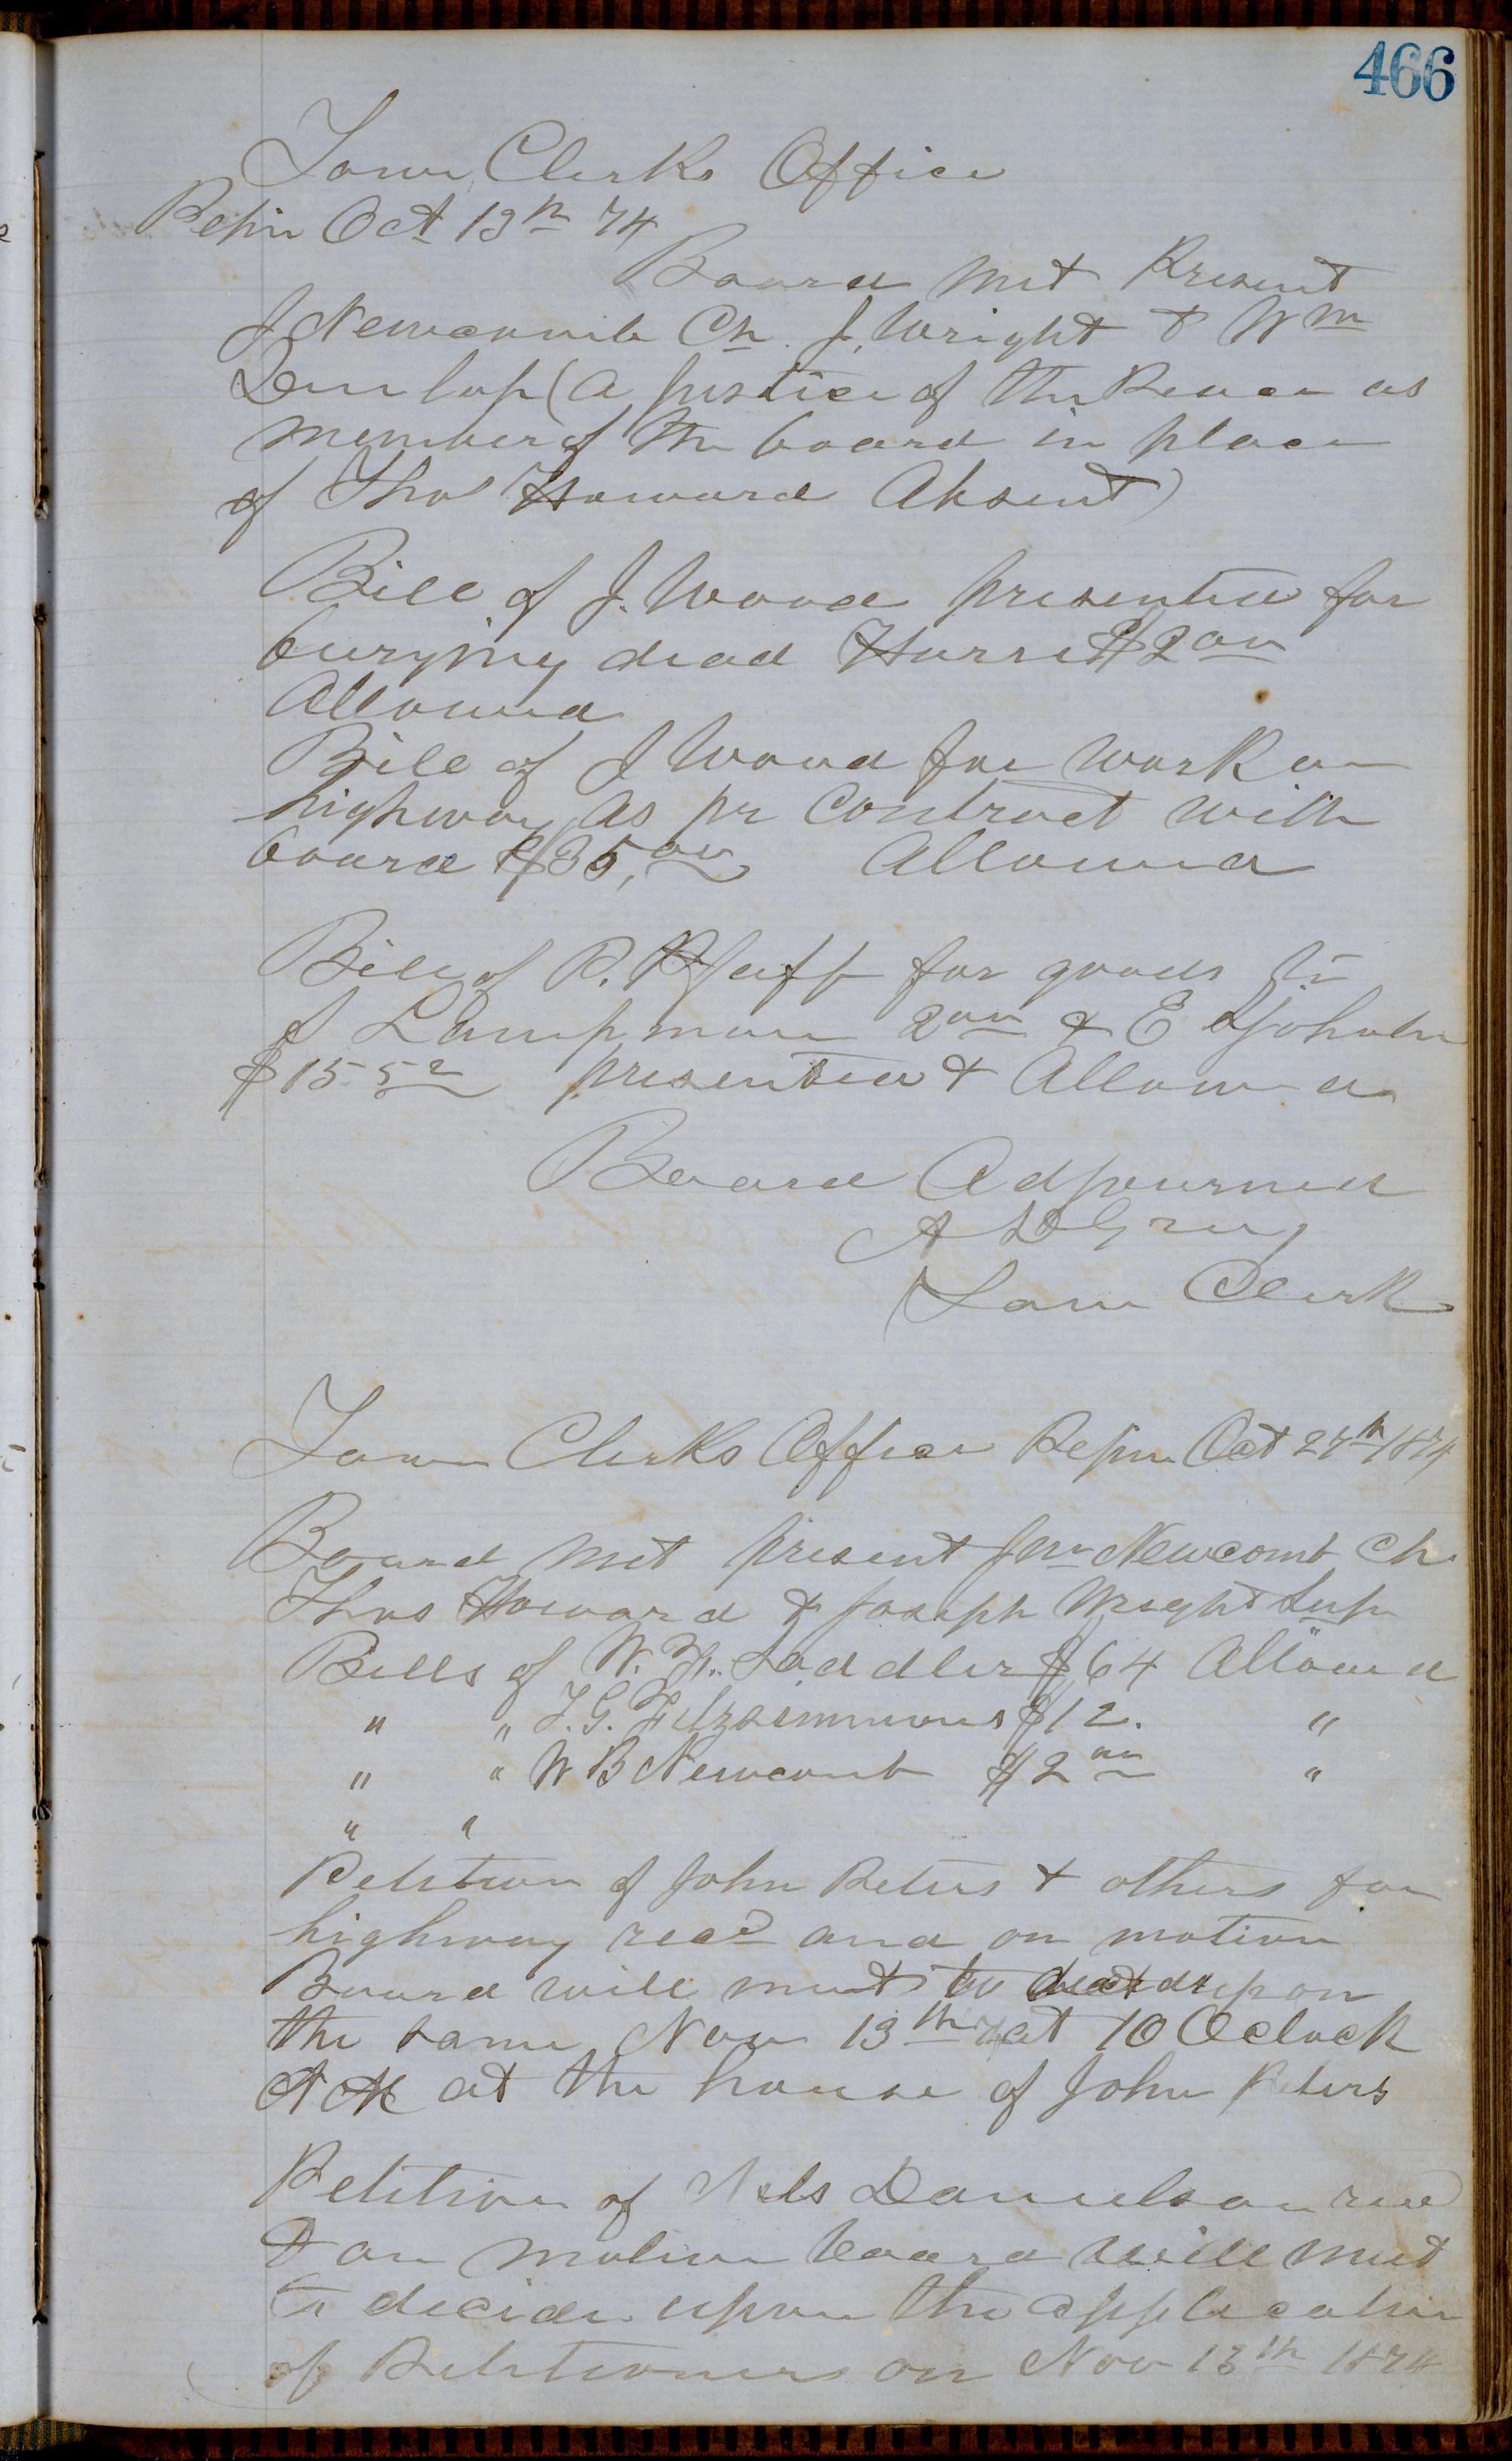 466
Town Clerks Office
Pepin Oct 13th 74
Board met Present
J Newcomb Ch. J. Wright & Wm
Dunlap (a Justice of the Peace as
member of the board in place
of Thos Howard Absent)
Bill of J. Wood presented for
burying dead Horse $2 00
Allowed
Bill of J Wood for work on
highway as pr Contract with
board $35,00 Allowed
Bill of P. Pfaff for goods to
J Lampman 2 00 & E
$15 52 presented & Allowed
Board Adjourned
A D Gray
Town Clerk
Town Clerks Office Pepin Oct 27th 1874
Board met present Jno Newcomb Ch.
Thos Howard & Joseph Wright Sup
Bills of W. F. Saddler $64 Allowed
" " T. G. Fitzsimmons $12. "
" " W B Newcomb $2 00 "
" "
Petition of John Peters & others for
highway recd and on motion
Board will meet to decide upon
the same Nov 13th 74 at 10 Oclock
A M at the house of John Peters
Petition of Nels Danielson recd
& on motion board will meet
to decide upon the application
of Petitioners on Nov 13th 1874